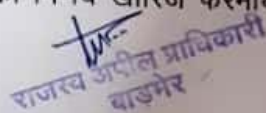 खारिज
राजस्व अपील प्राधिकारी
बाड़मेर